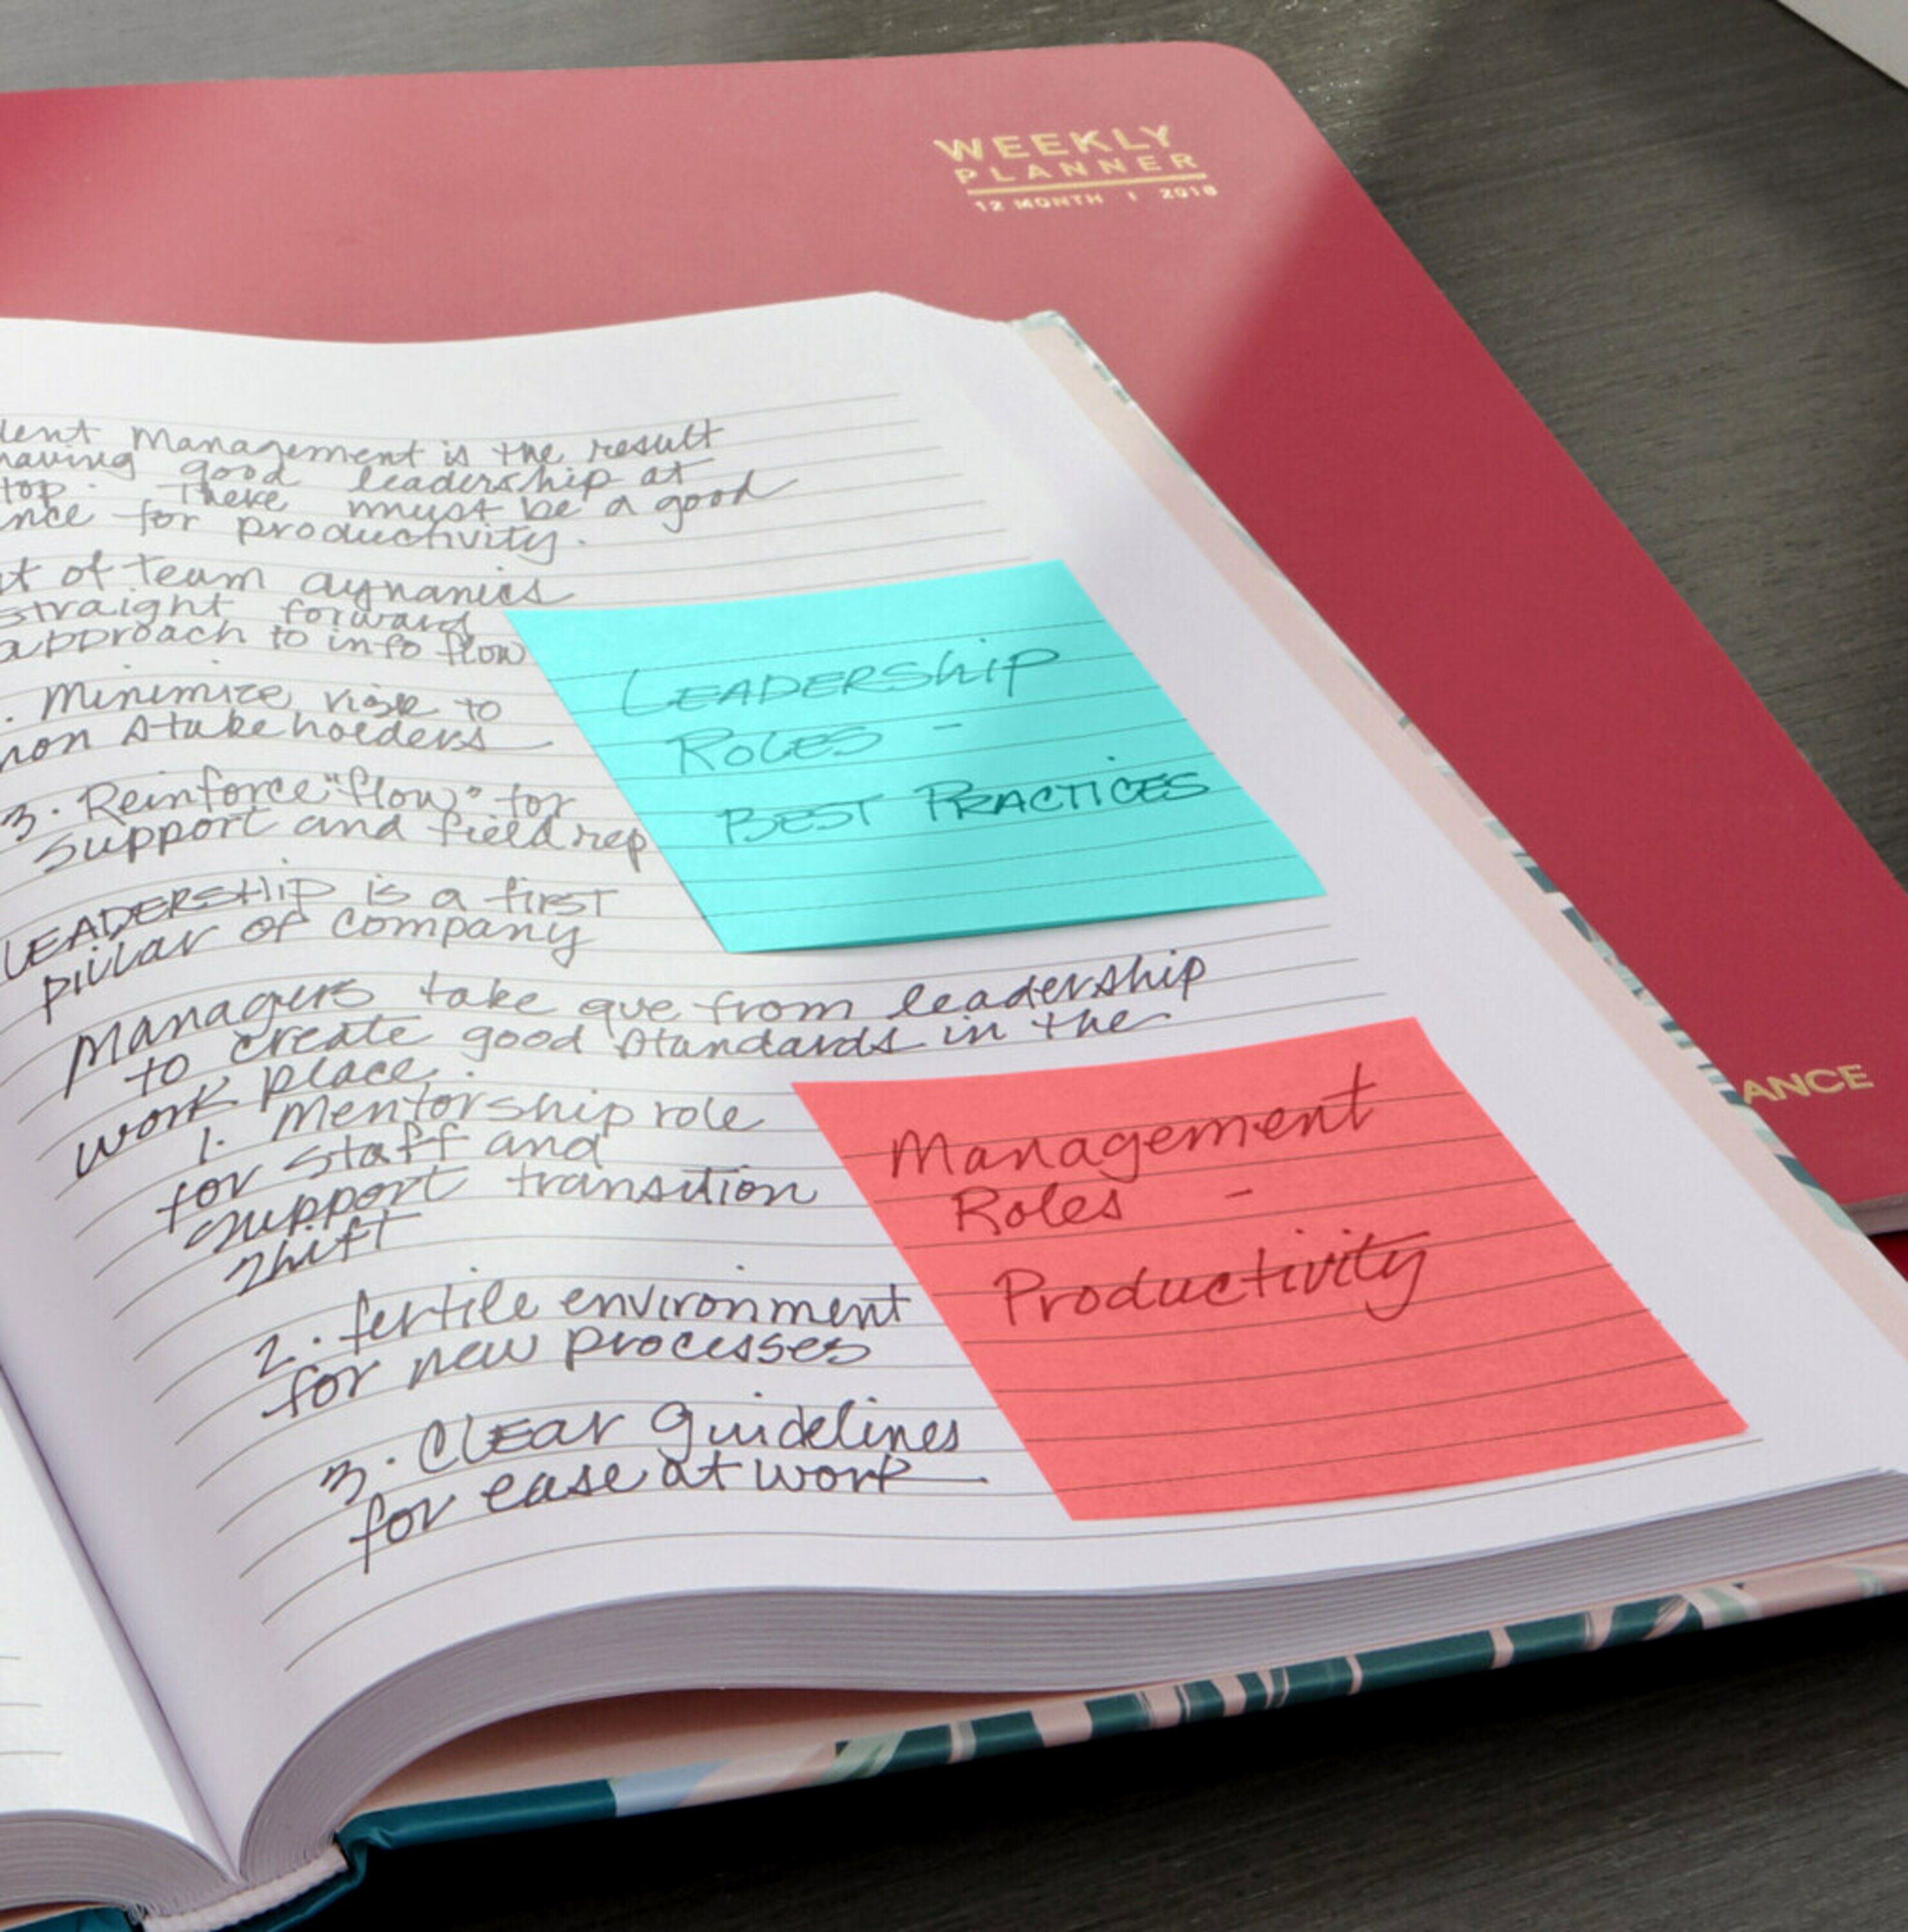 WEEKLY
PLANNER
12 MONTH | 2018
lent Management is the result
having good leadership at
top. There must be a good
nce for productivity.
t of team aynamics
straight forward
approach to info flow
. Minimize risk to
non stakeholders
3. Reinforce "flow" for
support and field rep
LEADERSHIP is a first
pillar of company
Managers take que from leadership
to create good standards in the
work place.
1. Mentorship role
for staff and
support transition
shift
2. fertile environment
for new processes
3. Clear Guidelines
for ease at work
LEADERShip
ROLES -
BEST PRACTICES
Management
Roles -
Productivity
ANCE